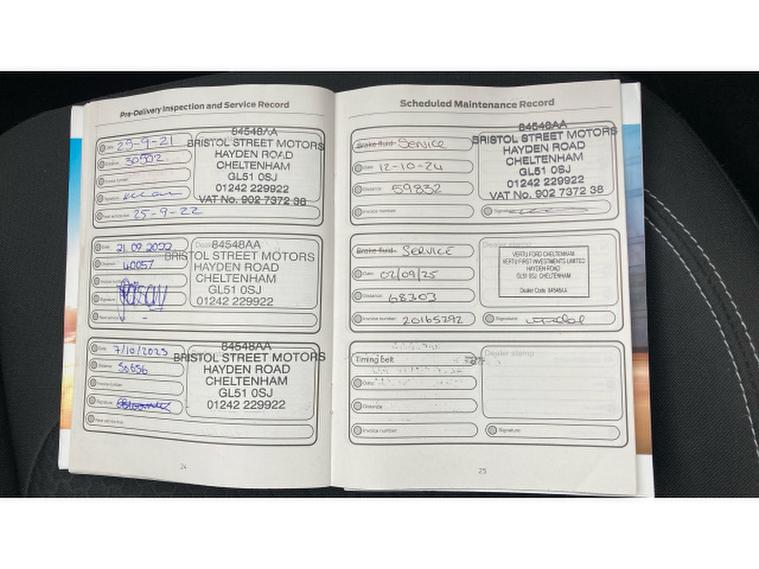 Pre-Delivery Inspection and Service Record
Date 25-9-21
Distance 30502
Invoice number
Signature
Next service due 25-9-22
84548AA
BRISTOL STREET MOTORS
HAYDEN ROAD
CHELTENHAM
GL51 0SJ
01242 229922
VAT No. 902 7372 38
Date 21 09 2022
Distance 40057
Invoice number
Signature
Next service
Dealer
84548AA
BRISTOL STREET MOTORS
HAYDEN ROAD
CHELTENHAM
GL51 0SJ
01242 229922
Date 7/10/2023
Distance 50656
Invoice number
Signature
Next service due
84548AA
BRISTOL STREET MOTORS
HAYDEN ROAD
CHELTENHAM
GL51 0SJ
01242 229922
24
Scheduled Maintenance Record
Brake fluid SERVICE
Date 12-10-24
Distance 59832
Invoice number
84548AA
BRISTOL STREET MOTORS
HAYDEN ROAD
CHELTENHAM
GL51 0SJ
01242 229922
VAT No. 902 7372 38
Signature
Brake fluid SERVICE
Date 02/09/25
Distance 68303
Invoice number 20165292
Dealer stamp
VERTU FORD CHELTENHAM
VERTU FIRST INVESTMENTS LIMITED
HAYDEN ROAD
GL51 0SJ CHELTENHAM
Dealer Code 84548AA
Signature
Timing belt
Date
Distance
Invoice number
Dealer stamp
Signature
25